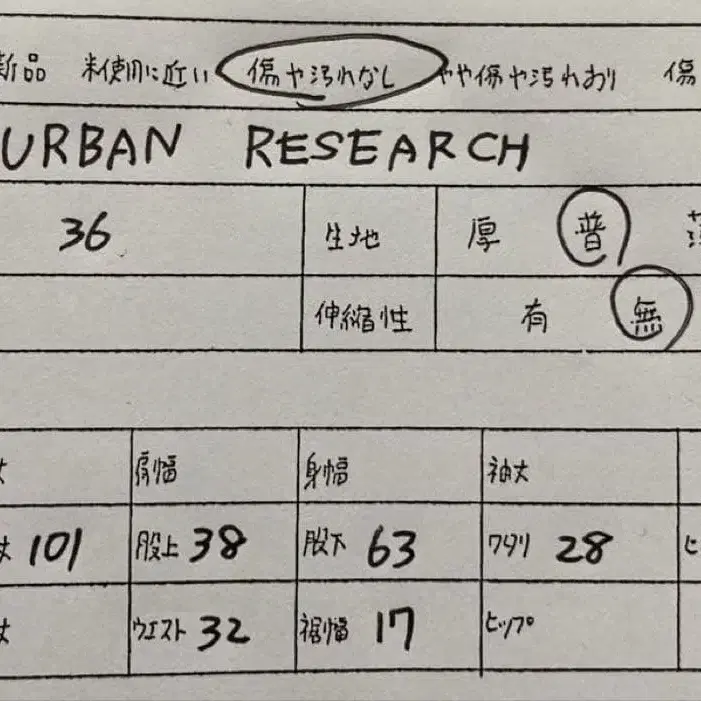 新品 未使用に近い 傷や汚れなし やや傷や汚れあり 傷
URBAN RESEARCH
36 生地 厚 普
伸縮性 有 無
丈 肩幅 身幅 袖丈
丈 101 股上 38 股下 63 ワタリ 28 ヒ
丈 ウエスト 32 裾幅 17 ヒップ